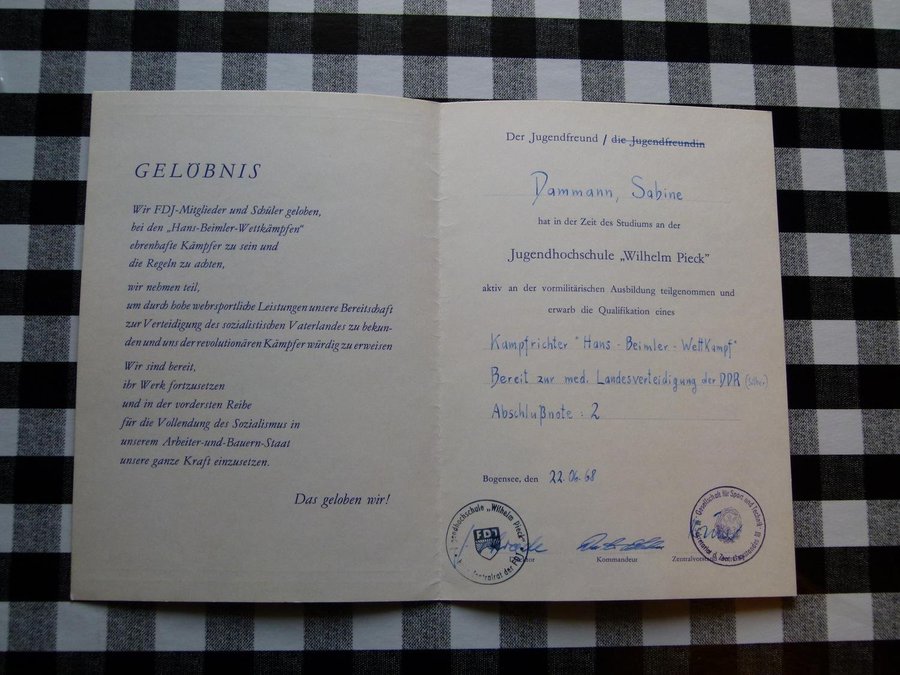 GELÖBNIS
Wir FDJ-Mitglieder und Schüler geloben,
bei den „Hans-Beimler-Wettkämpfen"
ehrenhafte Kämpfer zu sein und
die Regeln zu achten,
wir nehmen teil,
um durch hohe wehrsportliche Leistungen unsere Bereitschaft
zur Verteidigung des sozialistischen Vaterlandes zu bekun-
den und uns der revolutionären Kämpfer würdig zu erweisen
Wir sind bereit,
ihr Werk fortzusetzen
und in der vordersten Reihe
für die Vollendung des Sozialismus in
unserem Arbeiter-und-Bauern-Staat
unsere ganze Kraft einzusetzen.
Das geloben wir!
Der Jugendfreund / die Jugendfreundin
Dammann, Sabine
hat in der Zeit des Studiums an der
Jugendhochschule „Wilhelm Pieck"
aktiv an der vormilitärischen Ausbildung teilgenommen und
erwarb die Qualifikation eines
Kampfrichter "Hans-Beimler-Wettkampf"
Bereit zur med. Landesverteidigung der DDR (Silber)
Abschlußnote: 2
Bogensee, den 22.06.68
Jugendhochschule „Wilhelm Pieck"
FDJ
Zentralrat der FDJ
Kommandeur
Gesellschaft für Sport und Technik